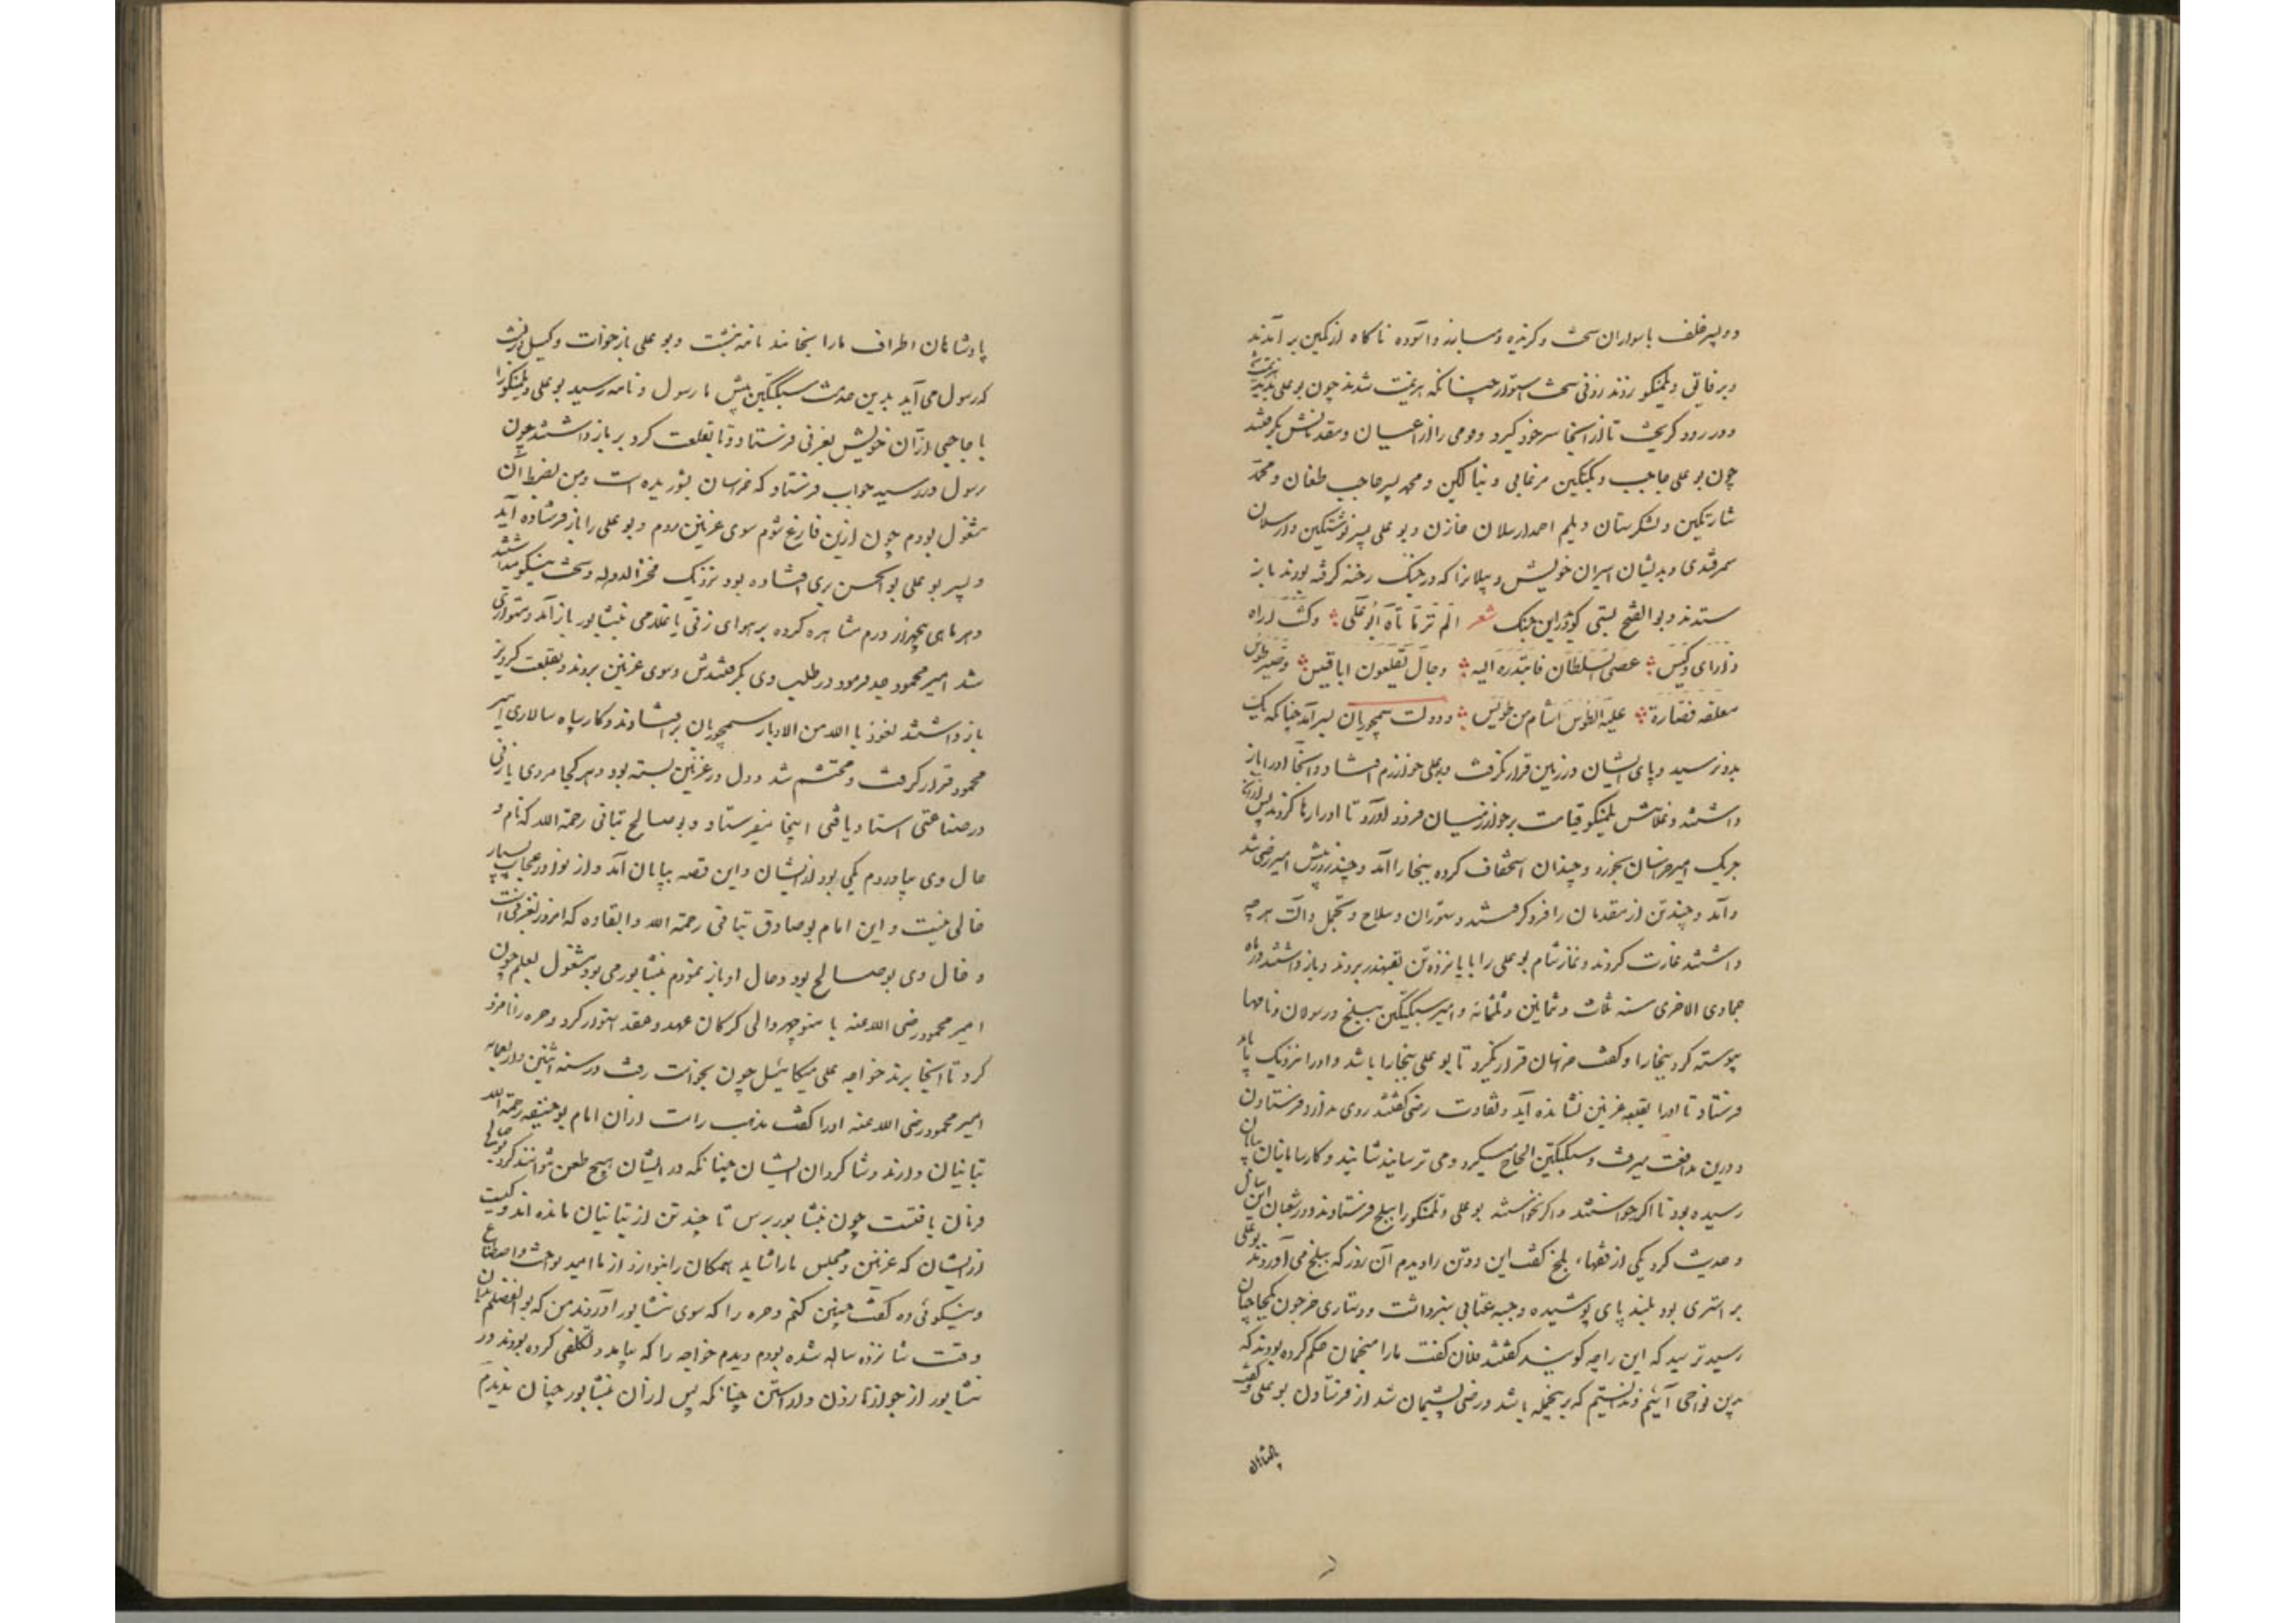 و پسر خلف با سواران سخت و گزیده و مبارز و آسوده ناگاه از کمین بر آمدند
و بر فایق و یلمنکو زدند زدنی سخت استوار چنانکه هزیمت شدند چون بوعلی بدید هزیمت شد
و در رود گریخت تا از آنجا سر خود گیرد و قومی را از اعیان و مقدمانش بگرفتند
چون بوعلی حاجب و بکتکین مرغابی و ینالتکین و محمد پسر حاجب طغان و محمد
شارتکین و لشکرستان دیلم احمد ارسلان خازن و بوعلی پسر نوشتکین و ارسلان
سمرقندی و بدیشان اسیران خویش و پیلانرا که در جنگ رخنه گرفته بودند باز
ستدند و بوالفتح بستی گوید در این جنگ شعر الم تر ما تاه ابو علی وکنت اراه
ذا رای وکیس عصی السلطان فابتدرت الیه رجال یقلعون ابا قبیس وصیر طوس
معقله فصارت علیه الطوس اشام من طویس و دولت سیمجوریان بسر آمد چنانکه یک
بدو نرسید و پای ایشان در زمین قرار نگرفت و بوعلی بخوارزم افتاد و آنجا او را باز
داشتند و غلامش یلمنکو قیامت بر خوارزمیان فرود آورد تا او را رها کردند پس از آن
چربک امیر خراسان بخورد و چندان استخفاف کرده ببخارا آمد و چند روز پیش امیر رضی شد
و آمد و چند تن از مقدمان را فرو گرفتند و ستوران و سلاح و تجمل و آلت هرچه
داشتند غارت کردند و نماز شام بوعلی را با پانزده تن بقهندز بردند و باز داشتند در ماه
جمادی الاخری سنه ثلث و ثمانین و ثلثمائه و امیر سبکتکین ببلخ و رسولان و نامها
پیوسته کرد ببخارا و گفت خراسان قرار نگیرد تا بوعلی ببخارا باشد و او را نزدیک ما باید
فرستاد تا او را بقلعه غزنین نشانده آید و ثقات رضی گفتند روی ندارد فرستادن
و درین مدافعت میرفت و سبکتکین الحاح میکرد و می ترسانیدشانید و کار سامانیان بپایان
رسیده بود تا اگر خواستند و اگر نخواستند بوعلی و یلمنکو را ببلخ فرستادند و در شعبان این سال
و حدیث کرد یکی از فقهاء بلخ گفت این دو تن را دیدم آن روز که ببلخ می آوردند بوعلی
بر استری بود بلند پای پوشیده و جبه عتابی سبز داشت و دستاری خز چون بکجاجیان
رسید پرسید که این را چه گویند گفتند فلان گفت ما را منجمان حکم کرده بودند که
بدین نواحی آئیم و ندانستیم که بر اینجمله باشد و رضی پشیمان شد از فرستادن بوعلی و گفت
پادشاهان
پادشاهان اطراف ما را بخایند نامه نبشت و بوعلی باز خواست وکیل در نبشت
که رسول می آید بدین حدیث سبکتکین پیش تا رسول و نامه رسید بوعلی و یلمنکو را
با حاجبی از آن خویش بغزنی فرستاد و تا بقلعت گردیز باز داشتند چون
رسول در رسید جواب فرستاد که خراسان بشوریده است و من بضبط آن
مشغول بودم چون ازین فارغ شوم سوی غزنین روم و بوعلی را باز فرستاده آید
و پسر بوعلی بوالحسن بری افتاده بود نزدیک فخرالدوله و سخت نیکو میداشتند
و هر ماهی پنجهزار درم مشاهره کرده بر هوای زنی یا غلامی بنیشابور باز آمد و متواری
شد امیر محمود جد فرمود در طلب وی بگرفتندش و سوی غزنین بردند و بقلعت گردیز
باز داشتند نعوذ بالله من الادبار سیمجوریان برافتادند و کار سپاه سالاری امیر
محمود قرار گرفت و محتشم شد و دل در غزنین بسته بود و هر کجا مردی یا زنی
در صناعتی استاد یافتی اینجا میفرستاد و بوصالح تبانی رحمة الله که نام و
حال وی بیاوردم یکی بود ازیشان و این قصه بپایان آمد و از نوادر و عجایب بسیار
خالی نیست و این امام بوصادق تبانی رحمة الله و ابقاه که امروز بغزنی است
و خال وی بوصالح بود و حال او باز نمودم بنیشابور می بود مشغول بعلم چون
امیر محمود رضی الله عنه با منوچهر والی گرگان عهد و عقد استوار کرد و حره را نامزد
کرد تا آنجا برند خواجه علی میکائیل چون بخواست رفت در سنه اثنین و اربعمائه
امیر محمود رضی الله عنه او را گفت مذهب راست از آن امام بوحنیفه رحمة الله
تبانیان دارند و شاگردان ایشان چنانکه در ایشان هیچ طعن نتوانند کرد بوصالح
فرمان یافتست چون بنیشابور برس تا چند تن از تبانیان مانده اند و کیست
ازیشان که غزنین و مجلس ما را شاید همگان را بنواز و از ما امید نواخت و اصطناع
و نیکوئی ده گفت چنین کنم و حره را که سوی نشابور آوردند من که بوالفضلم بدان
وقت شانزده ساله شده بودم دیدم خواجه را که بیامد و تکلفی کرده بودند در
نشابور از جوازنا زدن و آراستن چنانکه پس از آن بنیشابور چنان ندیدم